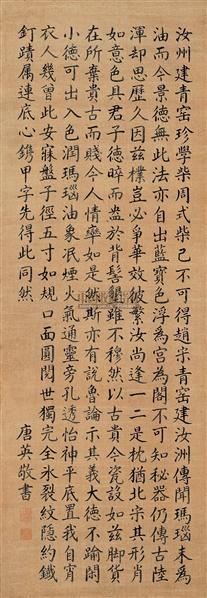 汝州建青窑珍學柴周式柴已不可得趙宋青窑建汝州傳聞瑪瑙末為
油而今景德無此法亦自出藍寶色浮為宮為閣不可知秘器仍傳古陸
渾却思歷久因兹樸豈必爭華效彼繁汝尚逢一二是枕猶北宗其形肖
如意色具君子德晬而盎於背髻墾雖不穆然以古貴今瓷設如兹脚貨
在所棄貴古而賤今人情率如是然斯亦有說魯論示其義大德不踰閑
小德可出入色潤瑪瑙油象泯煙火氣通靈旁孔透怡神平底置我自宵
衣人幾曾此安寐盤子徑五寸如規口面圓閱世獨完全氷裂紋隱約鐵
釘蹟属連底心鐫甲字先得此同然
唐英敬書